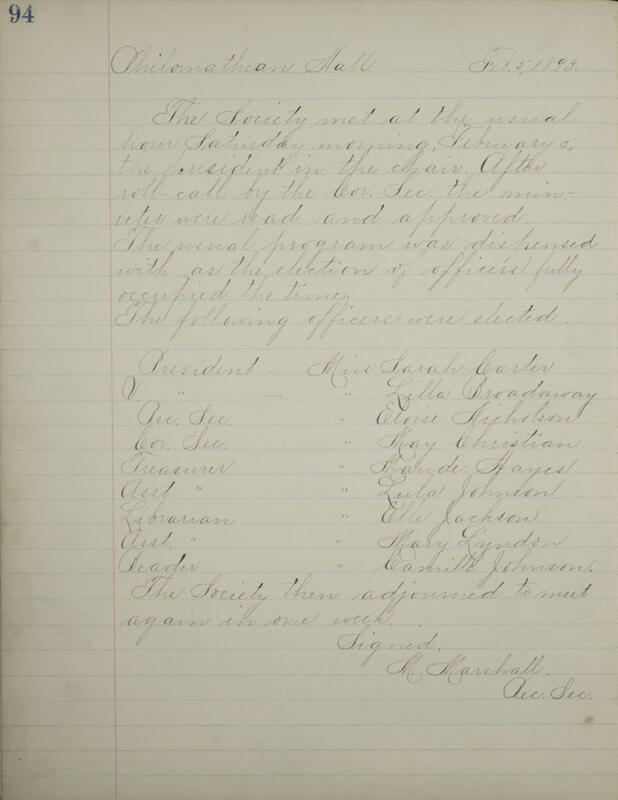 94
Philomathean Hall Feb. 5, 1893.
The Society met at the usual
hour Saturday morning, February 5,
the president in the chair. After
roll-call by the Cor. Sec. the min-
utes were read and approved.
The usual program was dispensed
with as the election of officers fully
occupied the time.
The following officers were elected.
President — Miss Sarah Carter
V. " — " Lilla Broadaway
Rec. Sec. " Eloise Nicholson
Cor. Sec. " May Christian
Treasurer " Maude Hayes
Asst " " Lula Johnson
Librarian " Elle Jackson
Asst. " " Mary Lyndon
Reader " Camille Johnson.
The Society then adjourned to meet
again in one week.
Signed.
M. Marshall.
Rec. Sec.